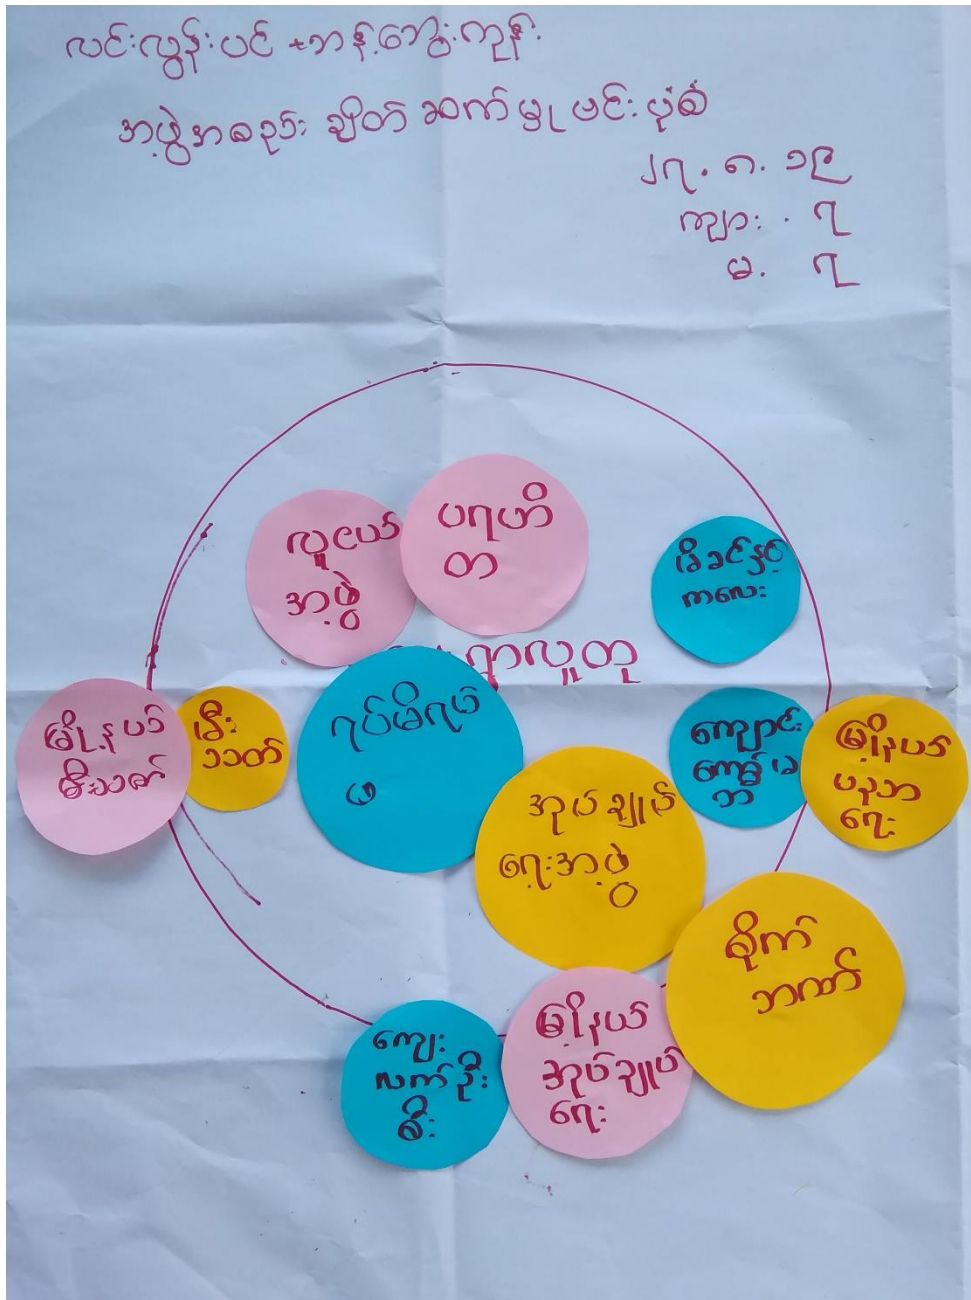 လင်းလွန်းပင် + ဘန့်ဘွေးကုန်း
အဖွဲ့အစည်း ချိတ်ဆက်မှု ဗင်းပုံစံ
၂၇. ၈. ၁၉
ကျား . ၇
မ. ၇
လူငယ်
အဖွဲ့
ပရဟိ
တ
မိခင်နှင့်
ကလေး
ရွာလူထု
မြို့နယ်
မီးသတ်
မီး
သတ်
ရပ်မိရပ်
ဖ
ကျောင်း
ကော်မ
ဘ
မြို့နယ်
ပညာ
ရေး
အုပ်ချုပ်
ရေးအဖွဲ့
စိုက်
ဘဏ်
ကျေး
လက်ဦး
စီး
မြို့နယ်
အုပ်ချုပ်
ရေး